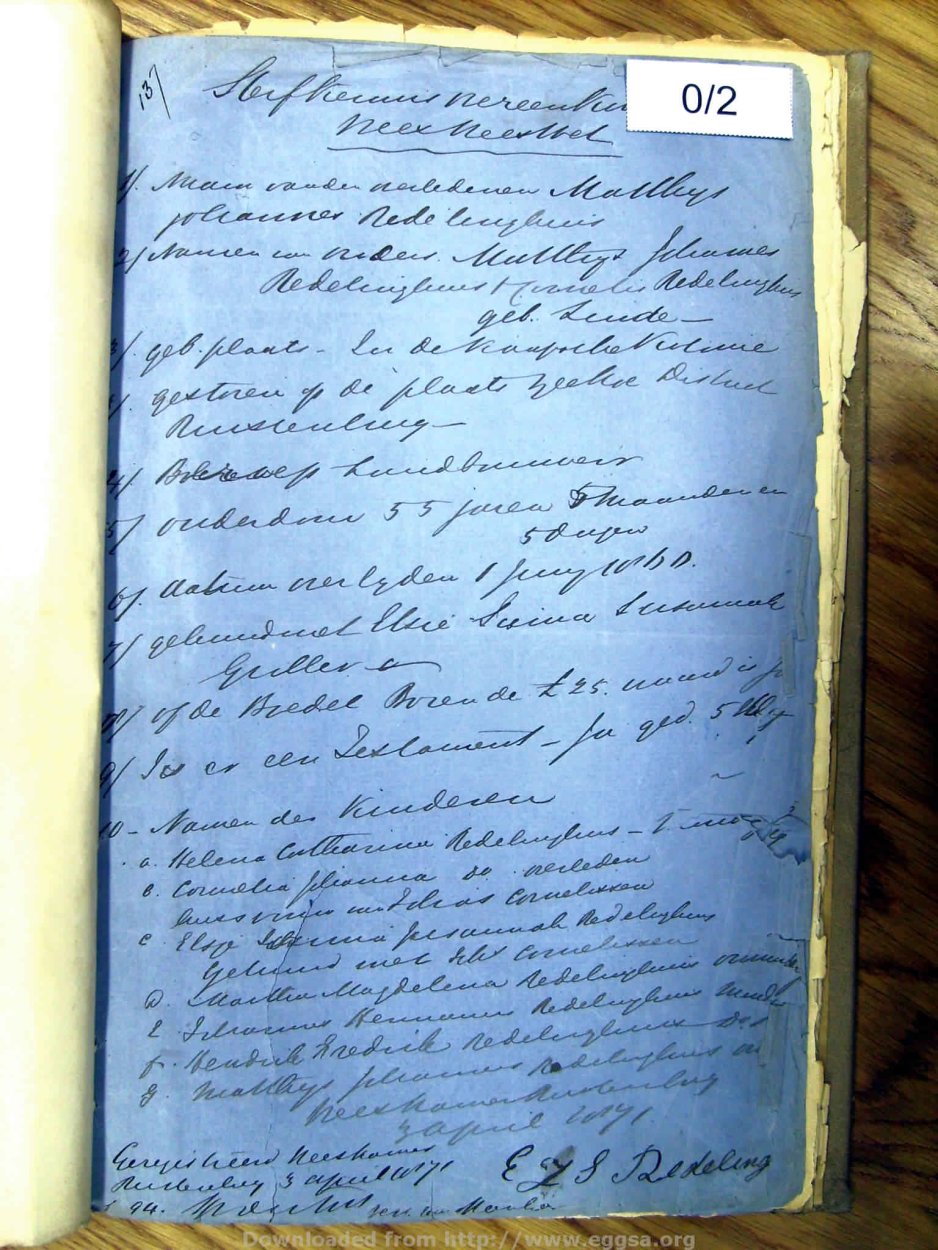 137
0/2
Sterfkennis
Weeskeeswet
1/. Naam van den overledenen Matthys
Johannes Redelinghuis
2/ Namen van ouders. Matthys Johannes
Redelinghuis & Cornelia Redelinghuis
geb. Linde —
3/. geb. plaats - In de Kaapsche Kolonie
gestorven op de plaats Zeekoe District
Rustenburg —
4/ Beroep Landbouwer
5/ ouderdom 55 jaren 5 maanden en
5 dagen
6/. datum overlyden 1 Juny
7/ gehuwd met Elsie Susannah
8/ of de Boedel Boven de £25. waard is ja
9/ Is er een Testament - Ja ged. 5
10 - Namen der Kinderen
a. Helena Catharina Redelinghuis -
B. Cornelia Johanna do overleden
Cornelissen
c. Elsje Susannah Redelinghuis
gehuwd met Cornelissen
D. Martha Magdelena Redelinghuis
E. Johannes Hermanus Redelinghuis
f. Hendrik Fredrik Redelinghuis
g. Matthys Johannes Redelinghuis
Weeskamer Rustenburg
3 April 1871
Geregistreerd Weeskamer
Rustenburg 3 April 1871
E S Redeling
Downloaded from http://www.eggsa.org